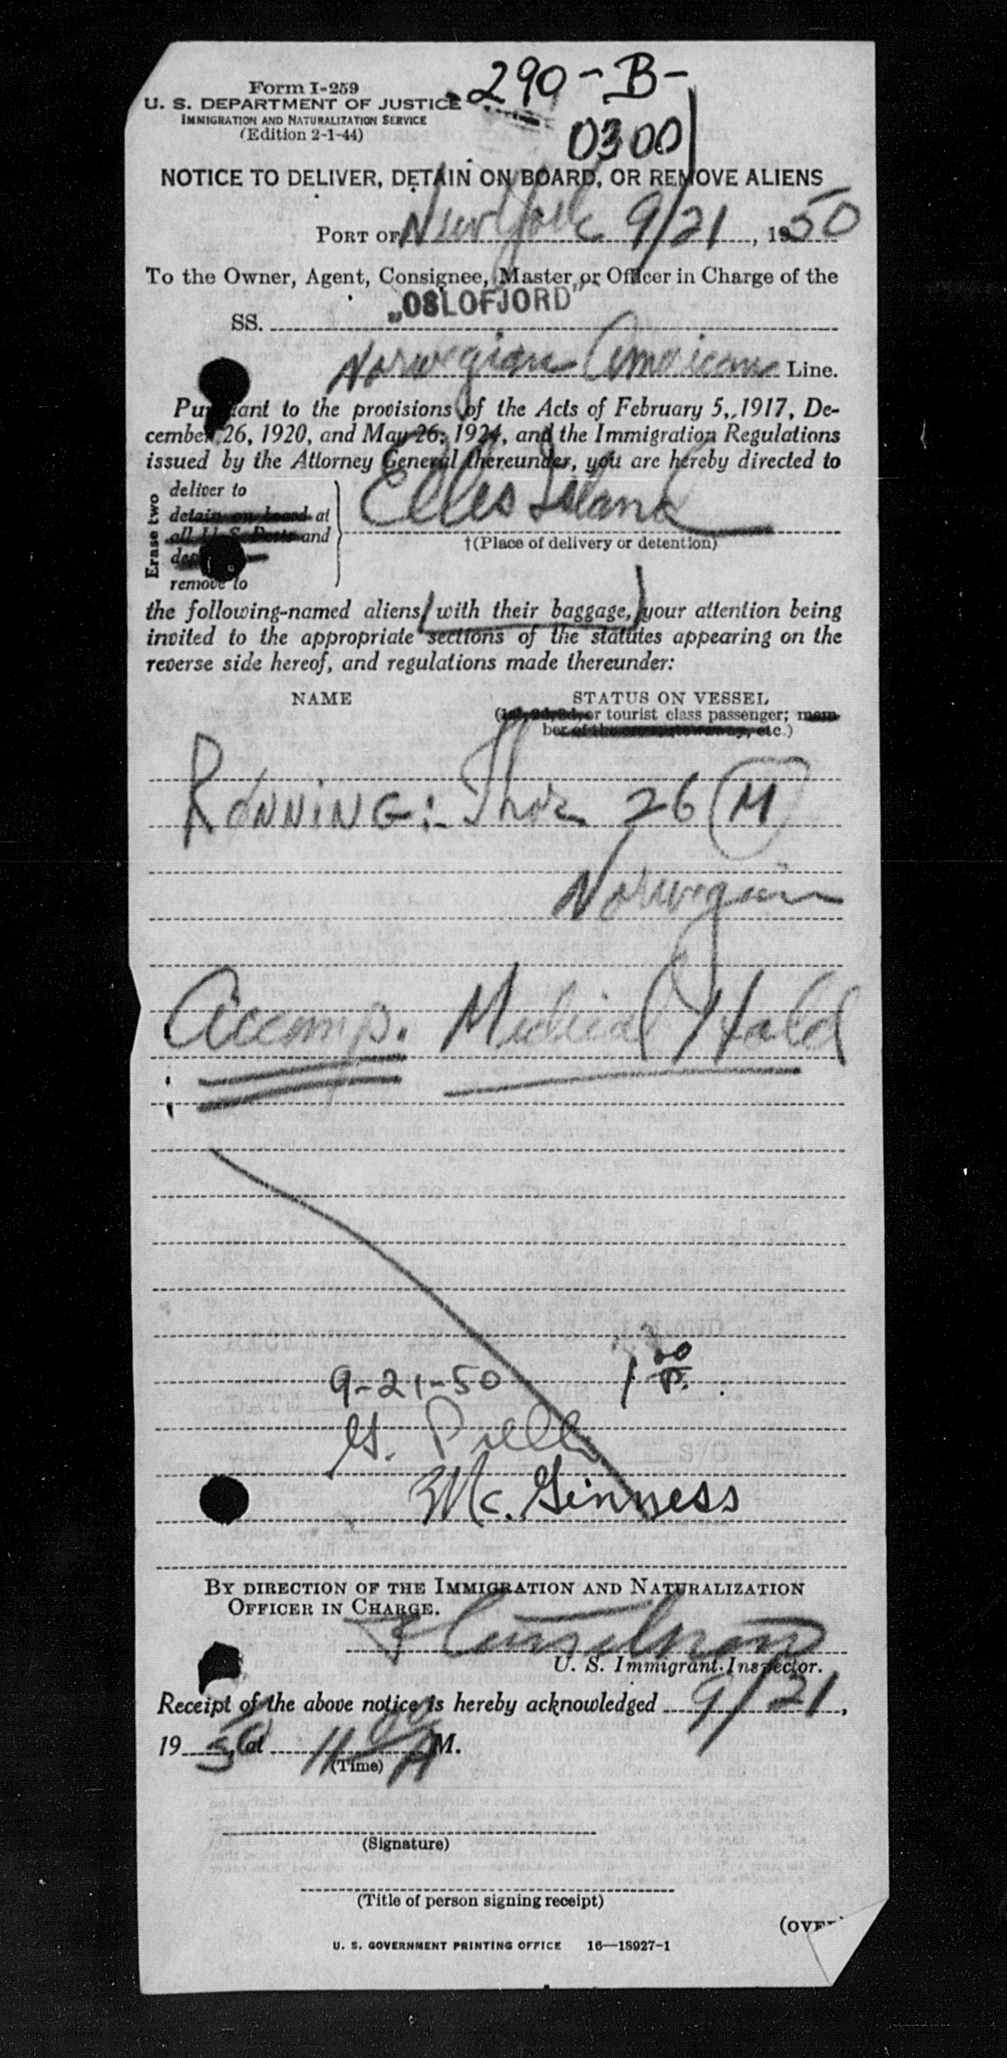 Form I-259
290-B-
U. S. DEPARTMENT OF JUSTICE
IMMIGRATION AND NATURALIZATION SERVICE
(Edition 2-1-44)
0300
NOTICE TO DELIVER, DETAIN ON BOARD, OR REMOVE ALIENS
PORT OF New York 9/21, 1950
To the Owner, Agent, Consignee, Master or Officer in Charge of the
SS. „OSLOFJORD”
Norwegian American Line.
Pursuant to the provisions of the Acts of February 5, 1917, De-
cember 26, 1920, and May 26, 1924, and the Immigration Regulations
issued by the Attorney General thereunder, you are hereby directed to
Erase two
deliver to
detain on board at
all U. S. Ports and
remove to
Ellis Island
†(Place of delivery or detention)
the following-named aliens (with their baggage,) your attention being
invited to the appropriate sections of the statutes appearing on the
reverse side hereof, and regulations made thereunder:
NAME STATUS ON VESSEL
(1st, 2d, 3d, or tourist class passenger; mem-
ber of the crew, stowaway, etc.)
RÖNNING: Thor 26 (M)
Norwegian
Accomp. Medical Hold
9-21-50 1 20 P.
G.
Mc. Ginness
BY DIRECTION OF THE IMMIGRATION AND NATURALIZATION
OFFICER IN CHARGE.
U. S. Immigrant Inspector.
Receipt of the above notice is hereby acknowledged 9/21,
1950, at 11 00 A M.
(Time)
(Signature)
(Title of person signing receipt)
(OVER)
U. S. GOVERNMENT PRINTING OFFICE 16—18927-1